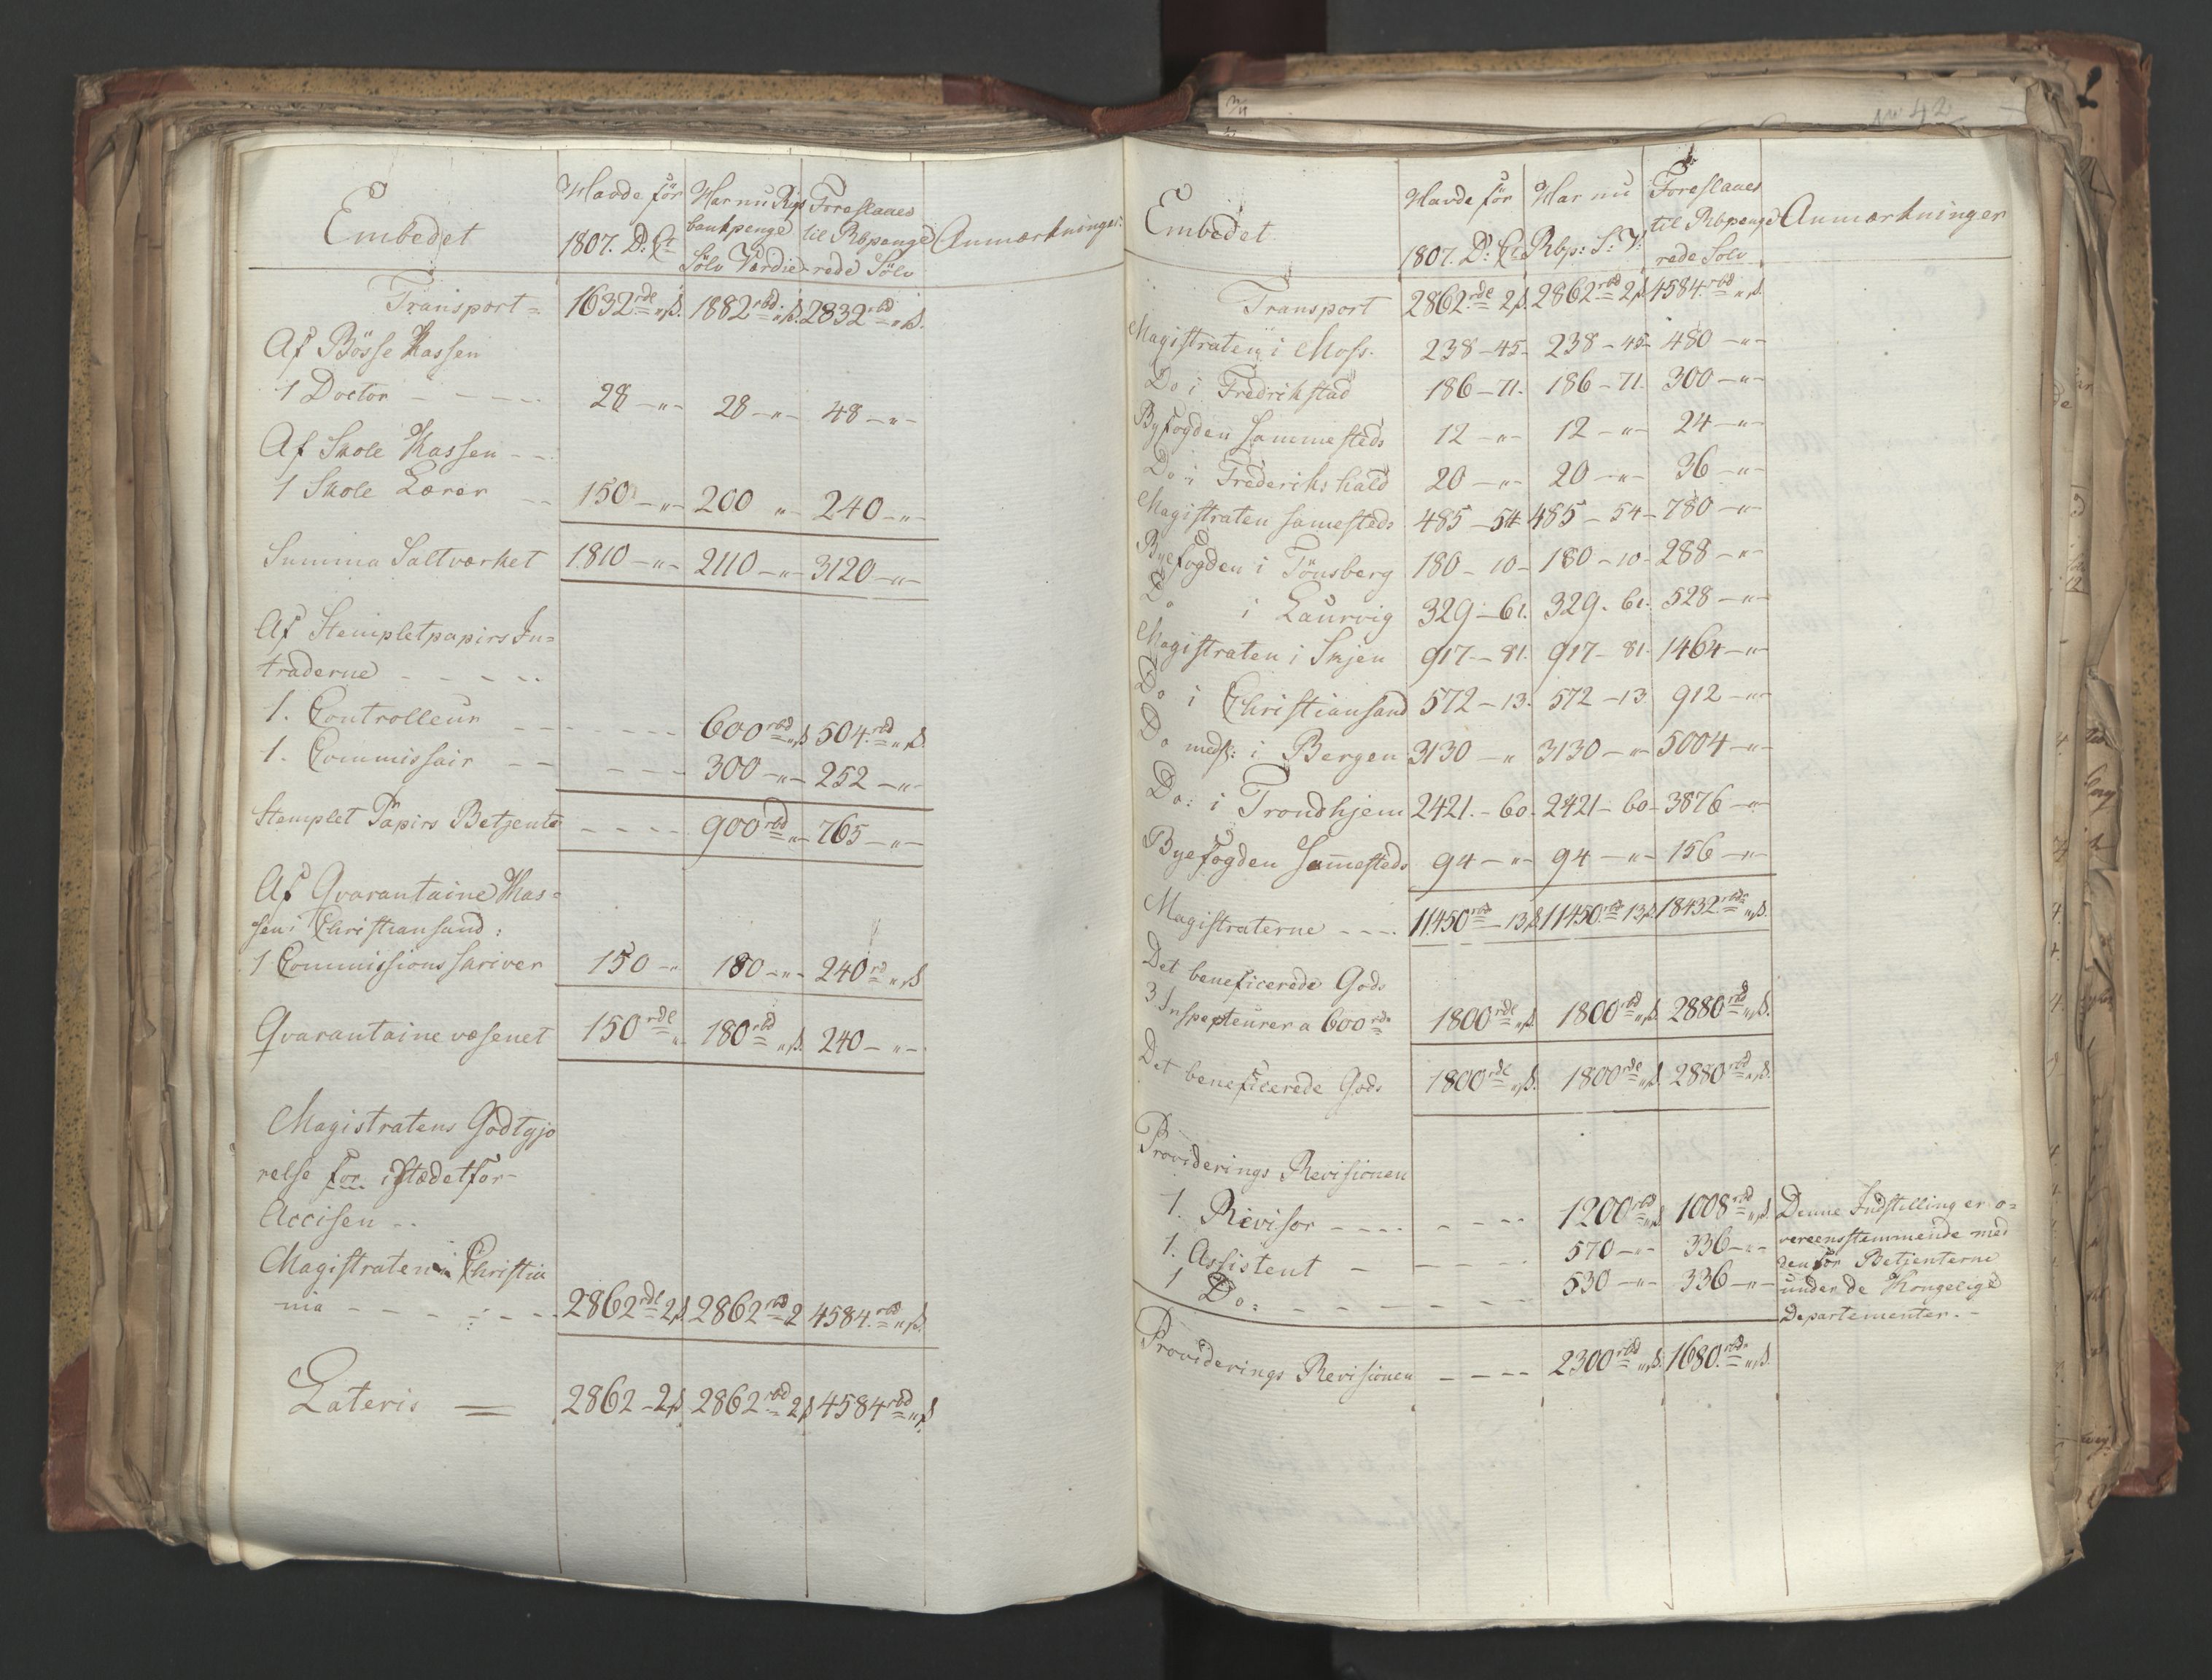 Embedet | Havde før 1807. D: Ct | Har nu Rigsbankpenge Sölv Værdie | Foreslaaes til Rbpenge rede Sölv | Anmærkninger.
Transport = 1632 rdl „ ß. 1882 rbd „ ß. 2832 rbd „ ß.
Af Bösse Kassen
1 Doctor - - - - 28 – „ – 28 – „ – 48 – „ –
Af Skole Kassen - -
1 Skole Lærer - - 150 – „ – 200 „ – 240 – „ –
Summa Saltværket 1810 – „ – 2110 – „ – 3120 – „ –
Af Stempletpapirs In=
traderne - - - - -
1. Controlleur - - - - - 600 rbd „ ß 504 rbd „ ß.
1. Commissair - - - - - 300 – „ – 252 – „ –
Stemplet Papirs Betjente - - - - 900 rbd „ – 765 – „ –
Af Qvarantaine Kas=
sen i Christiansand:
1 Commissions Skriver 150 – „ 180 – „ – 240 rd „ ß
Qvarantaine væsenet 150 rdl „ – 180 rbd „ ß. 240 – „ –
Magistratens Godtgjö
relse for istædetfor
Accisen - -
Magistraten i Christia
nia - - - - - - 2862 rdl 2 ß. 2862 rbd 2 4584 rbd „ ß.
Lateris = 2862 – 2 ß 2862 rbd 2 ß 4584 rbd „ ß
No 42
Embedet | Havde før 1807. D: Ct | Har nu Rbp: S: V: | Foreslaaes til Rbpenge rede Sölv | Anmærkninger
Transport 2862 rdl 2 ß. 2862 rbd 2 ß 4584 rbd „ ß.
Magistraten i Moss. 238 – 45 – 238 – 45 – 480 – „ –
Do i Fredrikstad 186 – 71. 186 – 71. 300 – „ –
Byfogden Sammesteds 12 – „ – 12 – „ – 24 – „ –
Do i Frederikshald 20 – „ – 20 – „ – 36 – „ –
Magistraten samesteds 485 – 54 485 – 54 – 780 – „ –
Byefogden i Tönsberg 180 – 10 – 180 – 10 – 288 – „ –
Do i Laurvig 329 – 61. 329. 61. 528 – „ –
Magistraten i Skjen 917 – 81. 917 – 81. 1464 – „ –
Do i Christiansand 572 – 13. 572 – 13 912 – „ –
Do medß: i Bergen 3130 – „ 3130 – „ – 5004 – „ –
Do: i Trondhjem 2421. – 60. 2421 – 60 – 3876 – „ –
Byefogden Samesteds 94 – „ – 94 – „ – 156 – „ –
Magistraterne - - - . 11450 rbd – 13 ß 11450 rbd 13 ß 18432 rbd „ ß.
Det beneficerede Gods
3 Inspecteurer a 600 rd 1800 rdl „ ß. 1800 rbd „ ß 2880 rbd „ ß.
Det beneficerede Gods 1800 rdl „ ß. 1800 rdl „ ß. 2880 rbd „ ß.
Providerings Revisionen
1. Revisor - - - - - - - - 1200 rbd „ ß 1008 rbd „ ß.
1. Assistent - - - - - 570 – „ – 336 – „ –
1 Do: - - - - - - - 530 – „ – 336 – „ –
Denne Indstilling er o=
vereensstemmende med
den for Betjenterne
under de Kongelige
Departementer. -
Providerings Revisionen - - - - 2300 rbd „ ß. 1680 rbd „ ß.